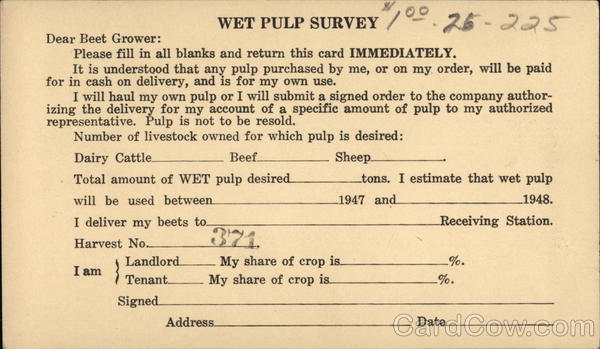 WET PULP SURVEY $1.00 . 25 - 225
Dear Beet Grower:
Please fill in all blanks and return this card IMMEDIATELY.
It is understood that any pulp purchased by me, or on my order, will be paid
for in cash on delivery, and is for my own use.
I will haul my own pulp or I will submit a signed order to the company author-
izing the delivery for my account of a specific amount of pulp to my authorized
representative. Pulp is not to be resold.
Number of livestock owned for which pulp is desired:
Dairy Cattle____________ Beef____________ Sheep____________.
Total amount of WET pulp desired____________tons. I estimate that wet pulp
will be used between____________1947 and____________1948.
I deliver my beets to____________Receiving Station.
Harvest No. 371.
I am { Landlord______ My share of crop is____________%.
Tenant______ My share of crop is____________%.
Signed____________
Address____________ Date____________
CardCow.com